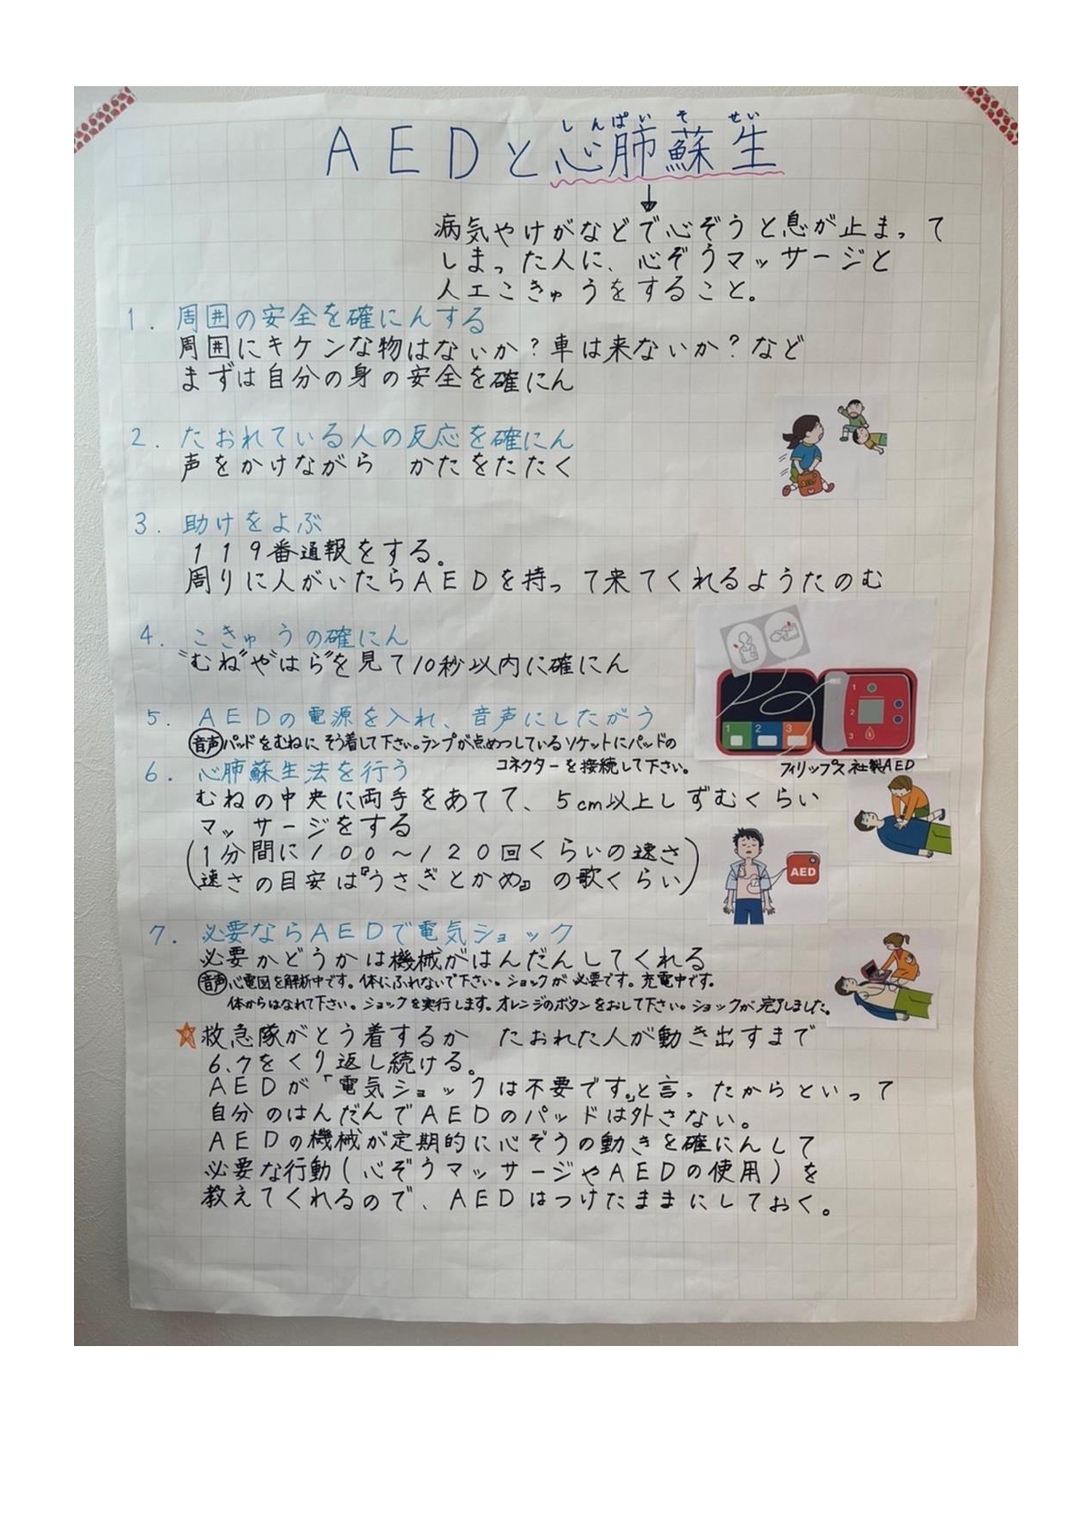 しんぱいそせい
AEDと心肺蘇生
病気やけがなどで心ぞうと息が止まって
しまった人に、心ぞうマッサージと
人工こきゅうをすること。
1. 周囲の安全を確にんする
周囲にキケンな物はないか?車は来ないか?など
まずは自分の身の安全を確にん
2. たおれている人の反応を確にん
声をかけながら かたをたたく
3. 助けをよぶ
119番通報をする。
周りに人がいたらAEDを持って来てくれるようたのむ
4. こきゅうの確にん
"むね"や"はら"を見て10秒以内に確にん
5. AEDの電源を入れ、音声にしたがう
音声 パッドをむねにそう着して下さい。ランプが点めつしているソケットにパッドの
コネクターを接続して下さい。
1
2
3
1
2
3
フィリップス社製AED
6. 心肺蘇生法を行う
むねの中央に両手をあてて、5cm以上しずむくらい
マッサージをする
(1分間に100~120回くらいの速さ
速さの目安は『うさぎとかめ』の歌くらい)
AED
7. 必要ならAEDで電気ショック
必要かどうかは機械がはんだんしてくれる
音声 心電図を解析中です。体にふれないで下さい。ショックが必要です。充電中です。
体からはなれて下さい。ショックを実行します。オレンジのボタンをおして下さい。ショックが完了しました。
救急隊がとう着するか たおれた人が動き出すまで
6.7をくり返し続ける。
AEDが「電気ショックは不要です。」と言ったからといって
自分のはんだんでAEDのパッドは外さない。
AEDの機械が定期的に心ぞうの動きを確にんして
必要な行動(心ぞうマッサージやAEDの使用)を
教えてくれるので、AEDはつけたままにしておく。